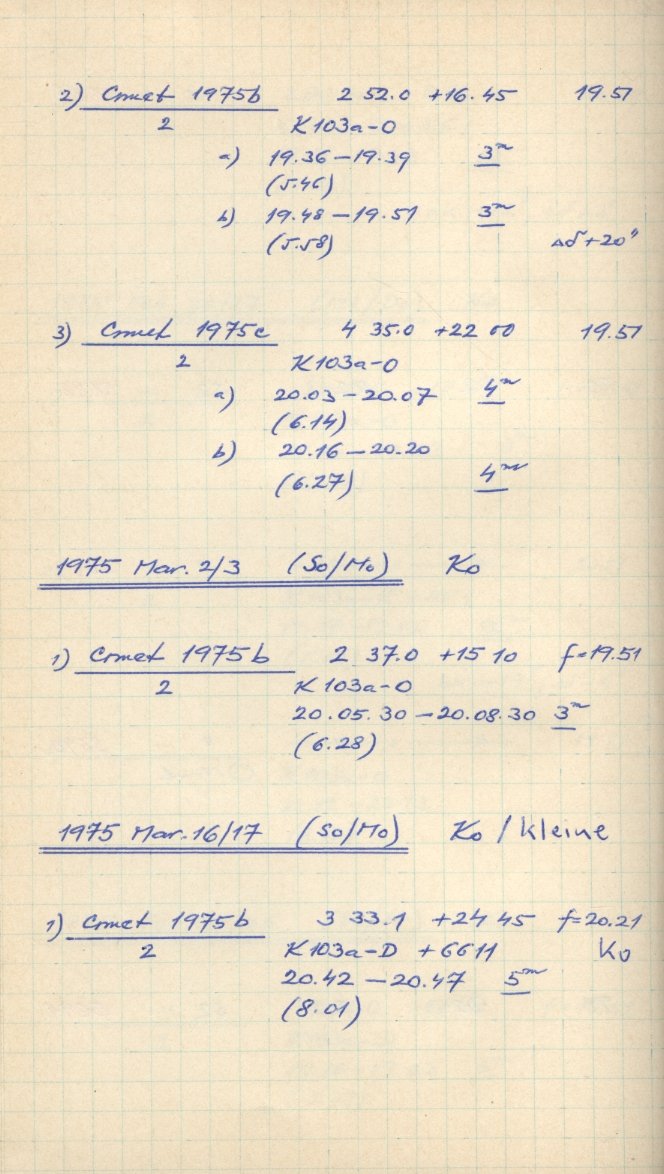 2) Comet 1975b 2 52.0 +16.45 19.51
2 K103a-O
a) 19.36 – 19.39 3m
(5.46)
b) 19.48 – 19.51 3m
(5.58) Δδ+20"
3) Comet 1975c 4 35.0 +22 00 19.51
2 K103a-O
a) 20.03 – 20.07 4m
(6.14)
b) 20.16 – 20.20
(6.27) 4m
1975 Mar. 2/3 (So/Mo) Ko
1) Comet 1975b 2 37.0 +15 10 f=19.51
2 K103a-O
20.05.30 – 20.08.30 3m
(6.28)
1975 Mar. 16/17 (So/Mo) Ko / Kleine
1) Comet 1975b 3 33.1 +24 45 f=20.21
2 K103a-D +GG11 Ko
20.42 – 20.47 5m
(8.01)